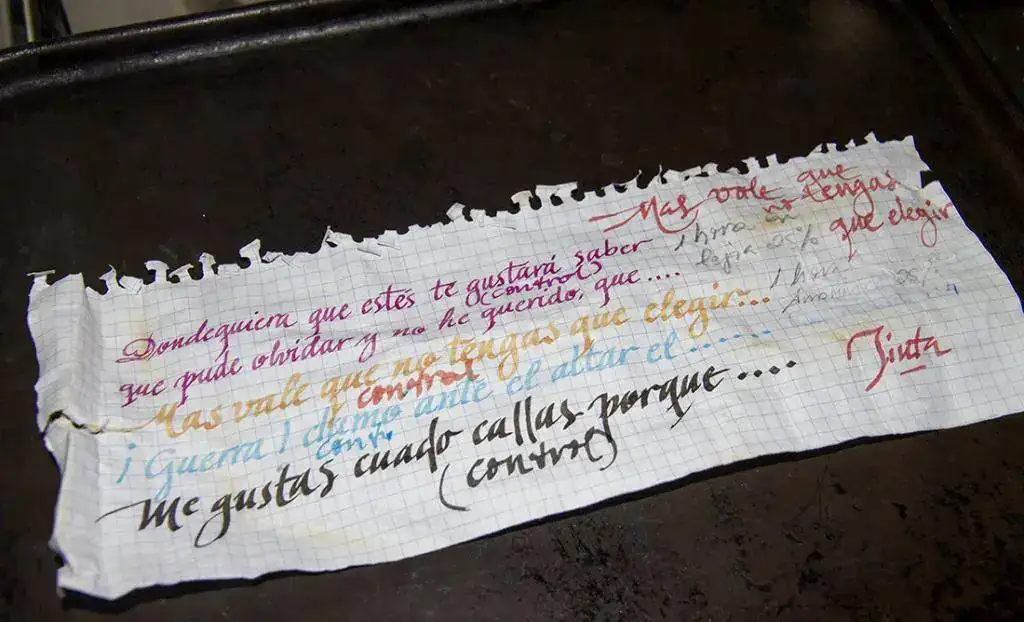 Mas vale que
no tengas
que elegir
1 hora en
lejia 25%
1 hora
Dondequiera que estés te gustará saber
(control)
que pude olvidar y no he querido, que....
Mas vale que no tengas que elegir...
control
¡Guerra! clamo ante el altar el ......
contr
Me gustas cuado callas porque ....
(control)
Tinta